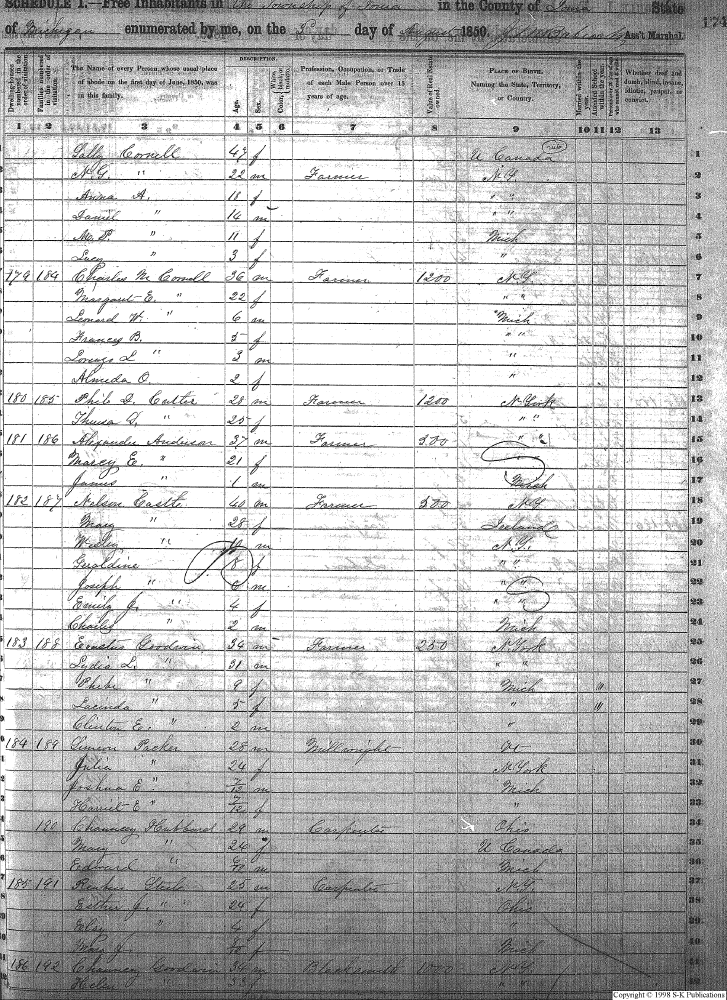 SCHEDULE I.—Free Inhabitants in the Township of Ionia in the County of Ionia State
of Michigan enumerated by me, on the day of August 1850. Ass't Marshal. 174
DESCRIPTION.
Dwelling-houses numbered in the order of visitation.
Families numbered in the order of visitation.
The Name of every Person whose usual place of abode on the first day of June, 1850, was in this family.
Age.
Sex.
Profession, Occupation, or Trade of each Male Person over 15 years of age.
Value of Real Estate owned.
PLACE OF BIRTH.
Naming the State, Territory, or Country.
Married within the year.
Whether deaf and dumb, blind, insane, idiotic, pauper, or convict.
1 2 3 4 5 6 7 8 9 10 11 12 13
Sally Cornell 47 f U Canada 1
N. G. " 22 m Farmer N.Y. 2
Anna A. 18 f " " 3
Daniel " 14 m " " 4
M. P. " 11 f Mich 5
Lucy " 3 f " 6
179 184 Charles M Cornell 36 m Farmer 1200 N.Y. 7
Margaret E. " 22 f " " 8
Leonard W. " 6 m Mich 9
Francis B. 5 f " " 10
Lorenzo L " 3 m " 11
Almeda O 2 f " 12
180 185 Philo D. Cutler 28 m Farmer 1200 N. York 13
" 25 f " " 14
181 186 Alexander Anderson 37 m Farmer 300 " " 15
Marcy E. " 21 f 16
James " 1 m Mich 17
182 187 Nelson Castle 40 m Farmer 500 N.Y. 18
Mary " 28 f Ireland 19
Wesley " m N.Y. 20
Geraldine 8 f " " 21
Joseph " 6 m " " 22
Emily J. " 4 f " " 23
Charles " 2 m Mich 24
183 188 Erastus Goodwin 34 m Farmer 250 N. York 25
Lydia L. " 31 m " " 26
Phebe " 9 f Mich 27
Lucinda " 5 f " 28
Clinton E. " 2 m " 29
184 189 Simeon Packer 28 m Millwright Vt 30
Julia " 24 f N. York 31
Joshua E " 7/12 m Mich 32
Harriet E " 7/12 f " 33
190 Chauncey Hubbard 29 m Carpenter Ohio 34
Mary " 24 f U Canada 35
Edward " m Mich 36
185 191 Reuben Steele 25 m Carpenter N.Y. 37
Esther J. " 24 f Ohio 38
" 4 f " 39
Mary J. f Mich 40
186 192 Chauncey Goodwin 34 m Blacksmith N.Y. 41
Helen " 33 f " " 42
Copyright © 1998 S-K Publications